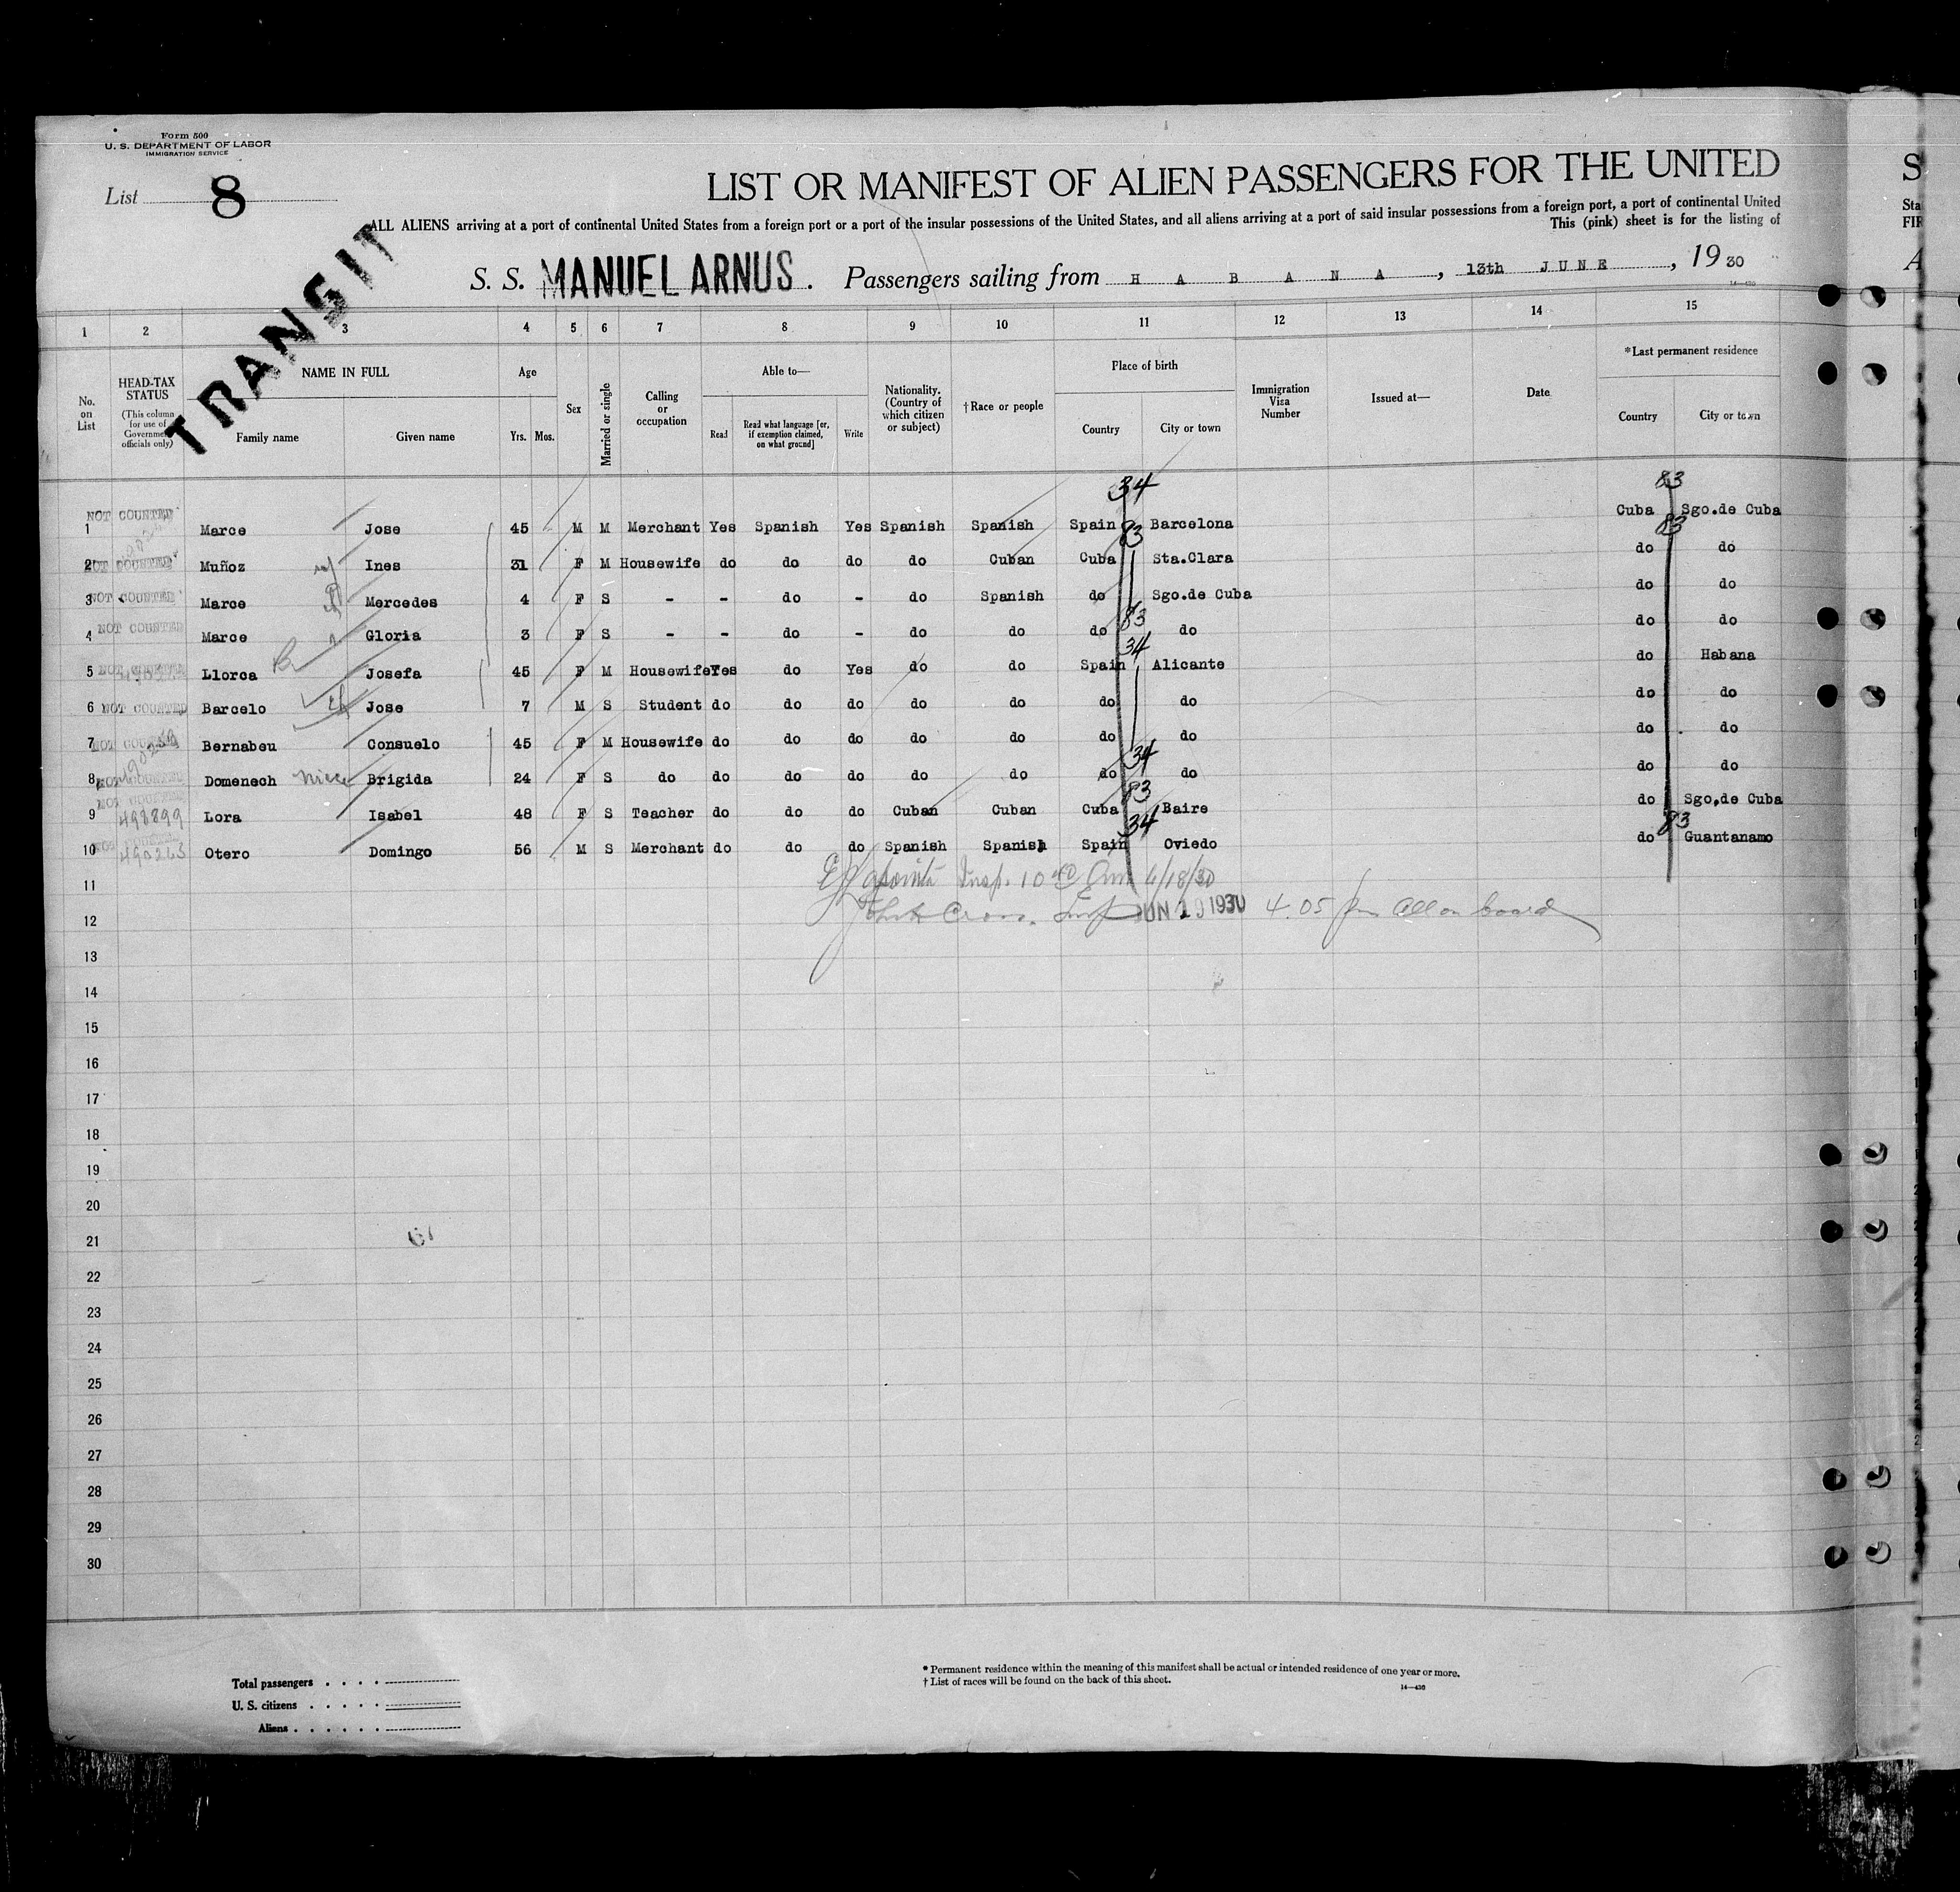 Form 500
U. S. DEPARTMENT OF LABOR
IMMIGRATION SERVICE
List 8
TRANSIT
LIST OR MANIFEST OF ALIEN PASSENGERS FOR THE UNITED
ALL ALIENS arriving at a port of continental United States from a foreign port or a port of the insular possessions of the United States, and all aliens arriving at a port of said insular possessions from a foreign port, a port of continental United
This (pink) sheet is for the listing of
S. S. MANUEL ARNUS. Passengers sailing from H A B A N A, 13th JUNE, 1930
1 2 3 4 5 6 7 8 9 10 11 12 13 14 15
No. on List
HEAD-TAX STATUS
(This column for use of Government officials only)
NAME IN FULL
Family name Given name
Age
Yrs. Mos.
Sex
Married or single
Calling or occupation
Able to—
Read
Read what language [or, if exemption claimed, on what ground]
Write
Nationality. (Country of which citizen or subject)
†Race or people
Place of birth
Country City or town
Immigration Visa Number
Issued at—
Date
*Last permanent residence
Country City or town
34 83
1 NOT COUNTED Marce Jose 45 M M Merchant Yes Spanish Yes Spanish Spanish Spain Barcelona Cuba Sgo.de Cuba
83 83
2 NOT COUNTED Muñoz Ines 31 F M Housewife do do do do Cuban Cuba Sta.Clara do do
3 NOT COUNTED Marce Mercedes 4 F S - - do - do Spanish do Sgo.de Cuba do do
83
4 NOT COUNTED Marce Gloria 3 F S - - do - do do do do do do
34
5 NOT COUNTED Llorca Josefa 45 F M Housewife Yes do Yes do do Spain Alicante do Habana
6 NOT COUNTED Barcelo Jose 7 M S Student do do do do do do do do do
7 NOT COUNTED Bernabeu Consuelo 45 F M Housewife do do do do do do do do do
34
8 NOT COUNTED Domenech niece Brigida 24 F S do do do do do do do do do do
83
9 NOT COUNTED 498899 Lora Isabel 48 F S Teacher do do do Cuban Cuban Cuba Baire do Sgo.de Cuba
34 83
10 NOT COUNTED 490263 Otero Domingo 56 M S Merchant do do do Spanish Spanish Spain Oviedo do Guantanamo
11 Insp. 10 40 Am 6/18/30
12 Cross. Insp JUN 19 1930 4.05 pm all on board
13
14
15
16
17
18
19
20
21
22
23
24
25
26
27
28
29
30
Total passengers
U. S. citizens
Aliens
* Permanent residence within the meaning of this manifest shall be actual or intended residence of one year or more.
† List of races will be found on the back of this sheet.
14—430